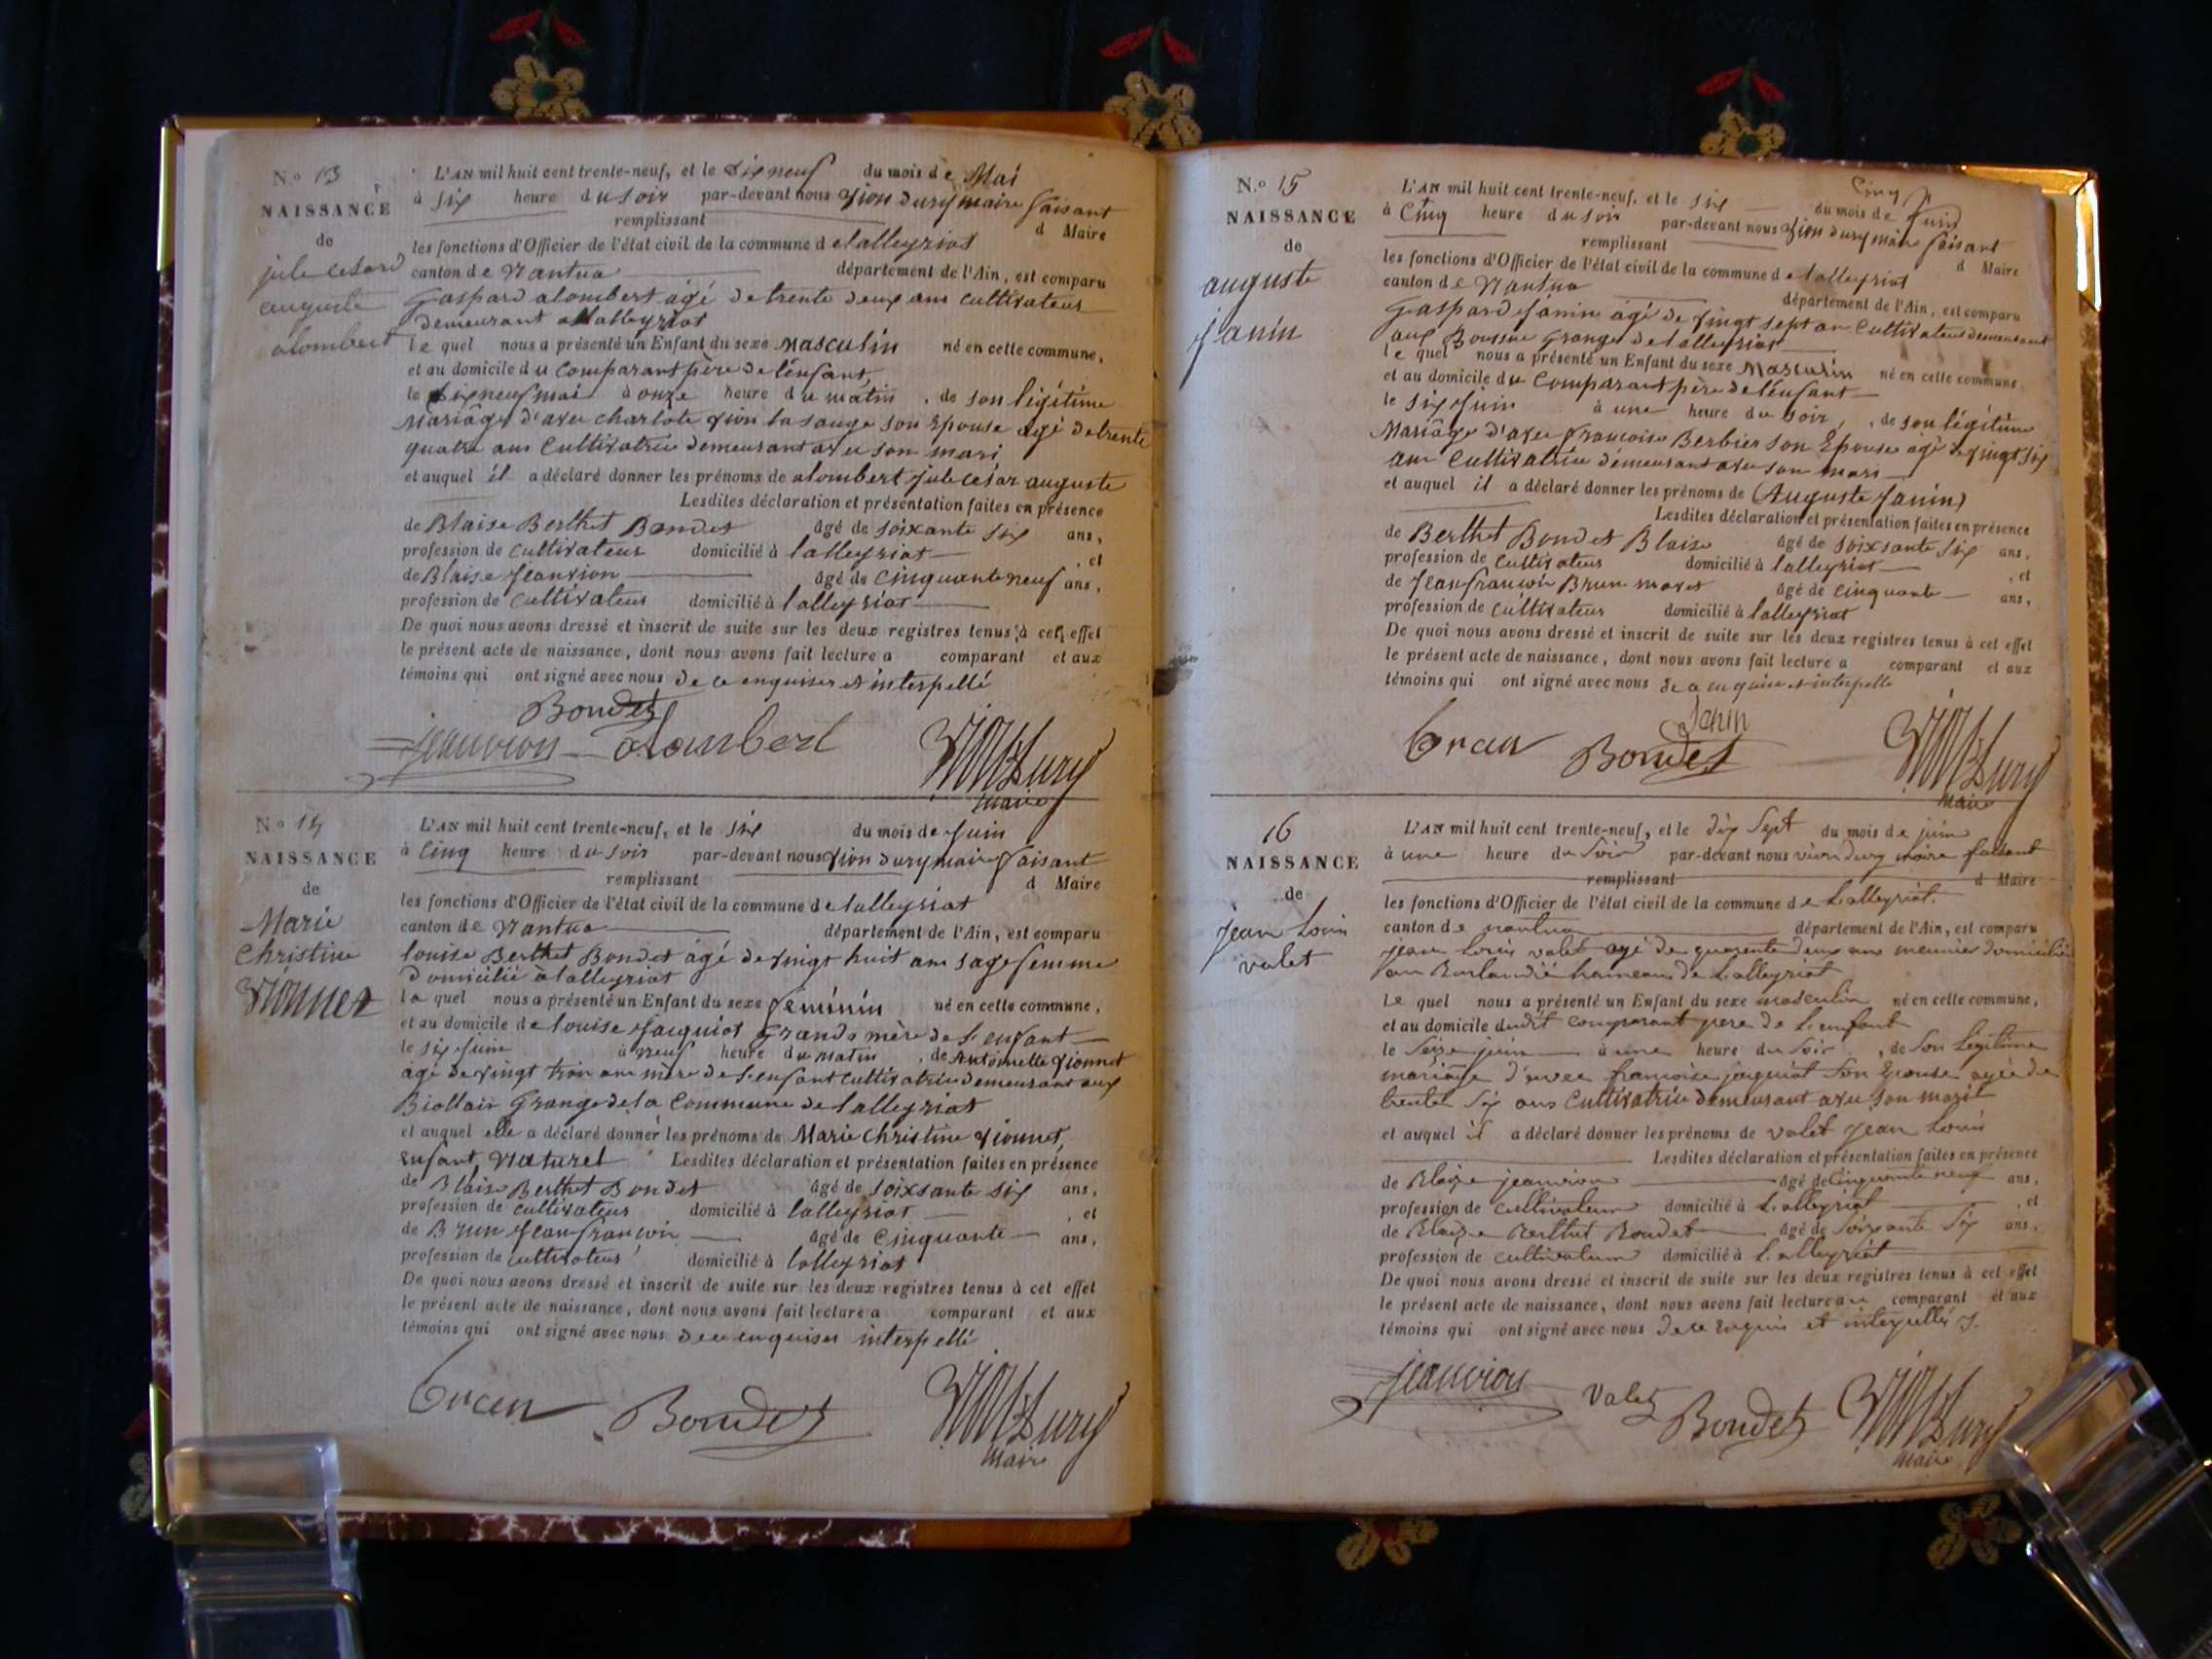 N.o 13
NAISSANCE
de
jule cesard
auguste
alombert
L'AN mil huit cent trente-neuf, et le dixneuf du mois de Mai
à six heure du soir par-devant nous Vion dury maire faisant
remplissant d Maire
les fonctions d'Officier de l'état civil de la commune de lalleyriat
canton de Nantua département de l'Ain, est comparu
Gaspard alombert agé de trente deux ans cultivateur
demeurant a lalleyriat
le quel nous a présenté un Enfant du sexe Masculin né en cette commune,
et au domicile du Comparant père de l'enfant,
le dixneuf mai à onze heure du matin, de son légitime
Mariâge d'avec charlote Vion la sauge son Epouse agé de trente
quatre ans Cultivatrice demeurant avec son mari
et auquel il a déclaré donner les prénoms de alombert jule cesar auguste
Lesdites déclaration et présentation faites en présence
de Blaise Berthet Bondet âgé de soixante six ans,
profession de cultivateur domicilié à lalleyriat, et
de Blaise Jeanvion âgé de cinquante neuf ans,
profession de cultivateur domicilié à lalleyriat
De quoi nous avons dressé et inscrit de suite sur les deux registres tenus à cet effet
le présent acte de naissance, dont nous avons fait lecture a comparant et aux
témoins qui ont signé avec nous de ce enquiser et interpellé
Bondet
jeanvion alombert Vion Dury
Maire
N.o 14
NAISSANCE
de
Marie
Christine
Vionnet
L'AN mil huit cent trente-neuf, et le six du mois de Juin
à Cinq heure du soir par-devant nous Vion dury maire faisant
remplissant d Maire
les fonctions d'Officier de l'état civil de la commune de lalleyriat
canton de Nantua département de l'Ain, est comparu
louise Berthet Bondet agé de vingt huit ans sage femme
Domicilié à lalleyriat
la quel nous a présenté un Enfant du sexe féminin né en cette commune,
et au domicile de louise Jacquiot Grande mère de l'enfant
le six Juin à neuf heure du matin, de Antoinette Vionnet
agé de vingt trois ans mère de l'enfant cultivatrice demeurant aux
Biollair Grange de la Commune de lalleyriat
et auquel elle a déclaré donner les prénoms de Marie christine Vionnet,
enfant Naturel Lesdites déclaration et présentation faites en présence
de Blaise Berthet Bondet âgé de soixsante six ans,
profession de cultivateur domicilié à lalleyriat, et
de Brun Jean françois âgé de Cinquante ans,
profession de cultivateur domicilié à lalleyriat
De quoi nous avons dressé et inscrit de suite sur les deux registres tenus à cet effet
le présent acte de naissance, dont nous avons fait lecture a comparant et aux
témoins qui ont signé avec nous de ce enquiser interpellé
brun Bondet Vion Dury
Maire
N.o 15
NAISSANCE
de
auguste
janin
L'AN mil huit cent trente-neuf, et le six du mois de Juin
à Cinq heure du soir par-devant nous Vion dury maire faisant
remplissant d Maire
les fonctions d'Officier de l'état civil de la commune de lalleyriat
canton de Nantua département de l'Ain, est comparu
Gaspard Janin agé de vingt sept an Cultivateur demeurant
aux Grange de lalleyriat
le quel nous a présenté un Enfant du sexe Masculin né en cette commune,
et au domicile du Comparant père de l'enfant
le six Juin à une heure du soir, de son légitime
Mariâge d'avec françoise Berbier son Epouse agé de vingt six
ans Cultivatrice demeurant avec son mari
et auquel il a déclaré donner les prénoms de (Auguste Janin)
Lesdites déclaration et présentation faites en présence
de Berthet Bondet Blaise âgé de soixsante six ans,
profession de Cultivateur domicilié à lalleyriat, et
de Jean françois Brun âgé de cinquante ans,
profession de cultivateur domicilié à lalleyriat
De quoi nous avons dressé et inscrit de suite sur les deux registres tenus à cet effet
le présent acte de naissance, dont nous avons fait lecture a comparant et aux
témoins qui ont signé avec nous de ce enquise et interpellé
Janin
brun Bondet Vion Dury
Maire
16
NAISSANCE
de
jean Louis
valet
L'AN mil huit cent trente-neuf, et le dix Sept du mois de juin
à une heure du Soir par-devant nous vion dury maire faisant
remplissant d Maire
les fonctions d'Officier de l'état civil de la commune de Lalleyriat.
canton de nantua département de l'Ain, est comparu
jean Louis valet agé de quarente deux ans meunier domicilié
au hameau de Lalleyriat
Le quel nous a présenté un Enfant du sexe masculin né en cette commune,
et au domicile dudit comparant pere de L'enfant
le Seize juin à une heure du Soir, de Son Legitime
mariage d'avec francoise jaquiot Son Epouse agée de
trente Six ans Cultivatrice demeurant avec son marit
et auquel il a déclaré donner les prénoms de valet jean Louis
Lesdites déclaration et présentation faites en présence
de Blaize jeanvion âgé de Cinquante neuf ans,
profession de cultivateur domicilié à Lalleyriat, et
de Blaize Berthet Bondet âgé de Soixante Six ans,
profession de cultivateur domicilié à Lalleyriat
De quoi nous avons dressé et inscrit de suite sur les deux registres tenus à cet effet
le présent acte de naissance, dont nous avons fait lecture au comparant et aux
témoins qui ont signé avec nous de ce Enquis et interpellés.
jeanvion valet Bondet Vion Dury
Maire